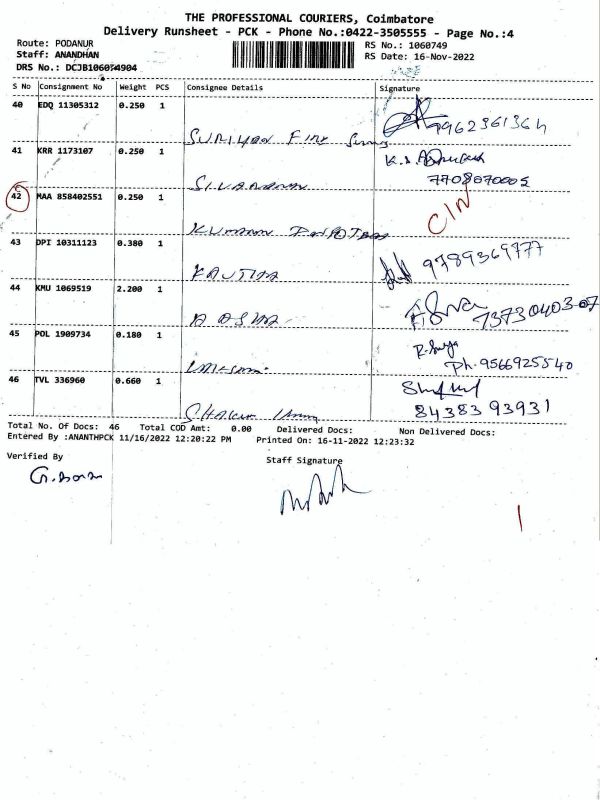 THE PROFESSIONAL COURIERS, Coimbatore
Delivery Runsheet - PCK - Phone No.:0422-3505555 - Page No.:4
Route: PODANUR
RS No.: 1060749
Staff: ANANDHAN
RS Date: 16-Nov-2022
DRS No.: DCJB106074904
S No Consignment No Weight PCS Consignee Details Signature
40 EDQ 11305312 0.250 1
SURIYAN FIRE 9962361364
41 KRR 1173107 0.250 1
SIVARAMAN 7708070005
42 MAA 858402551 0.250 1
KUMARAN CIN
43 DPI 10311123 0.380 1
KAVITHA 9789369777
44 KMU 1069519 2.200 1
7373040307
45 POL 1909734 0.180 1
R. Surya
Ph. 9566925540
46 TVL 336960 0.660 1
84383 93931
Total No. Of Docs: 46 Total COD Amt: 0.00 Delivered Docs: Non Delivered Docs:
Entered By :ANANTHPCK 11/16/2022 12:20:22 PM Printed On: 16-11-2022 12:23:32
Verified By
Staff Signature